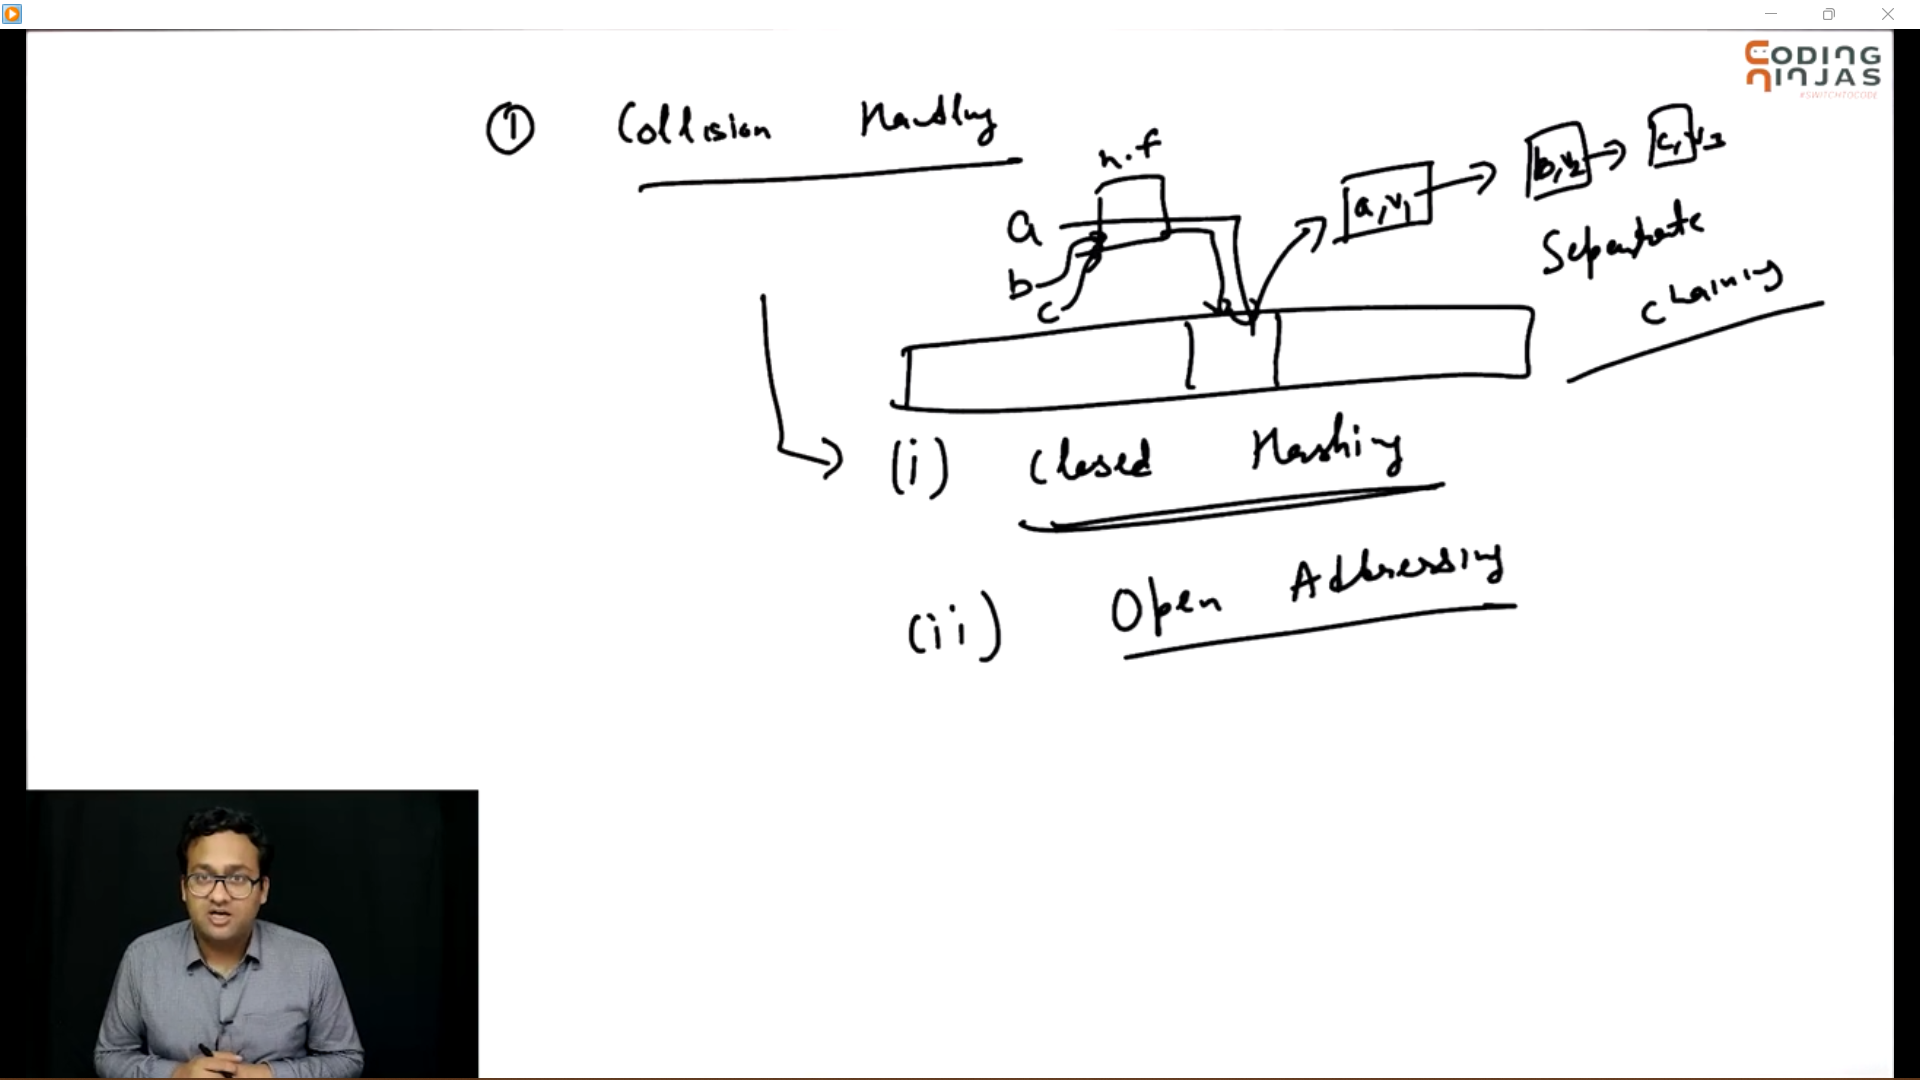 CODING
NINJAS
#SWITCHTOCODE
① Collision Handling
h.f
a
b
c
a,v1
b,v2
c,v3
Separate
chaining
(i) Closed Hashing
(ii) Open Addressing